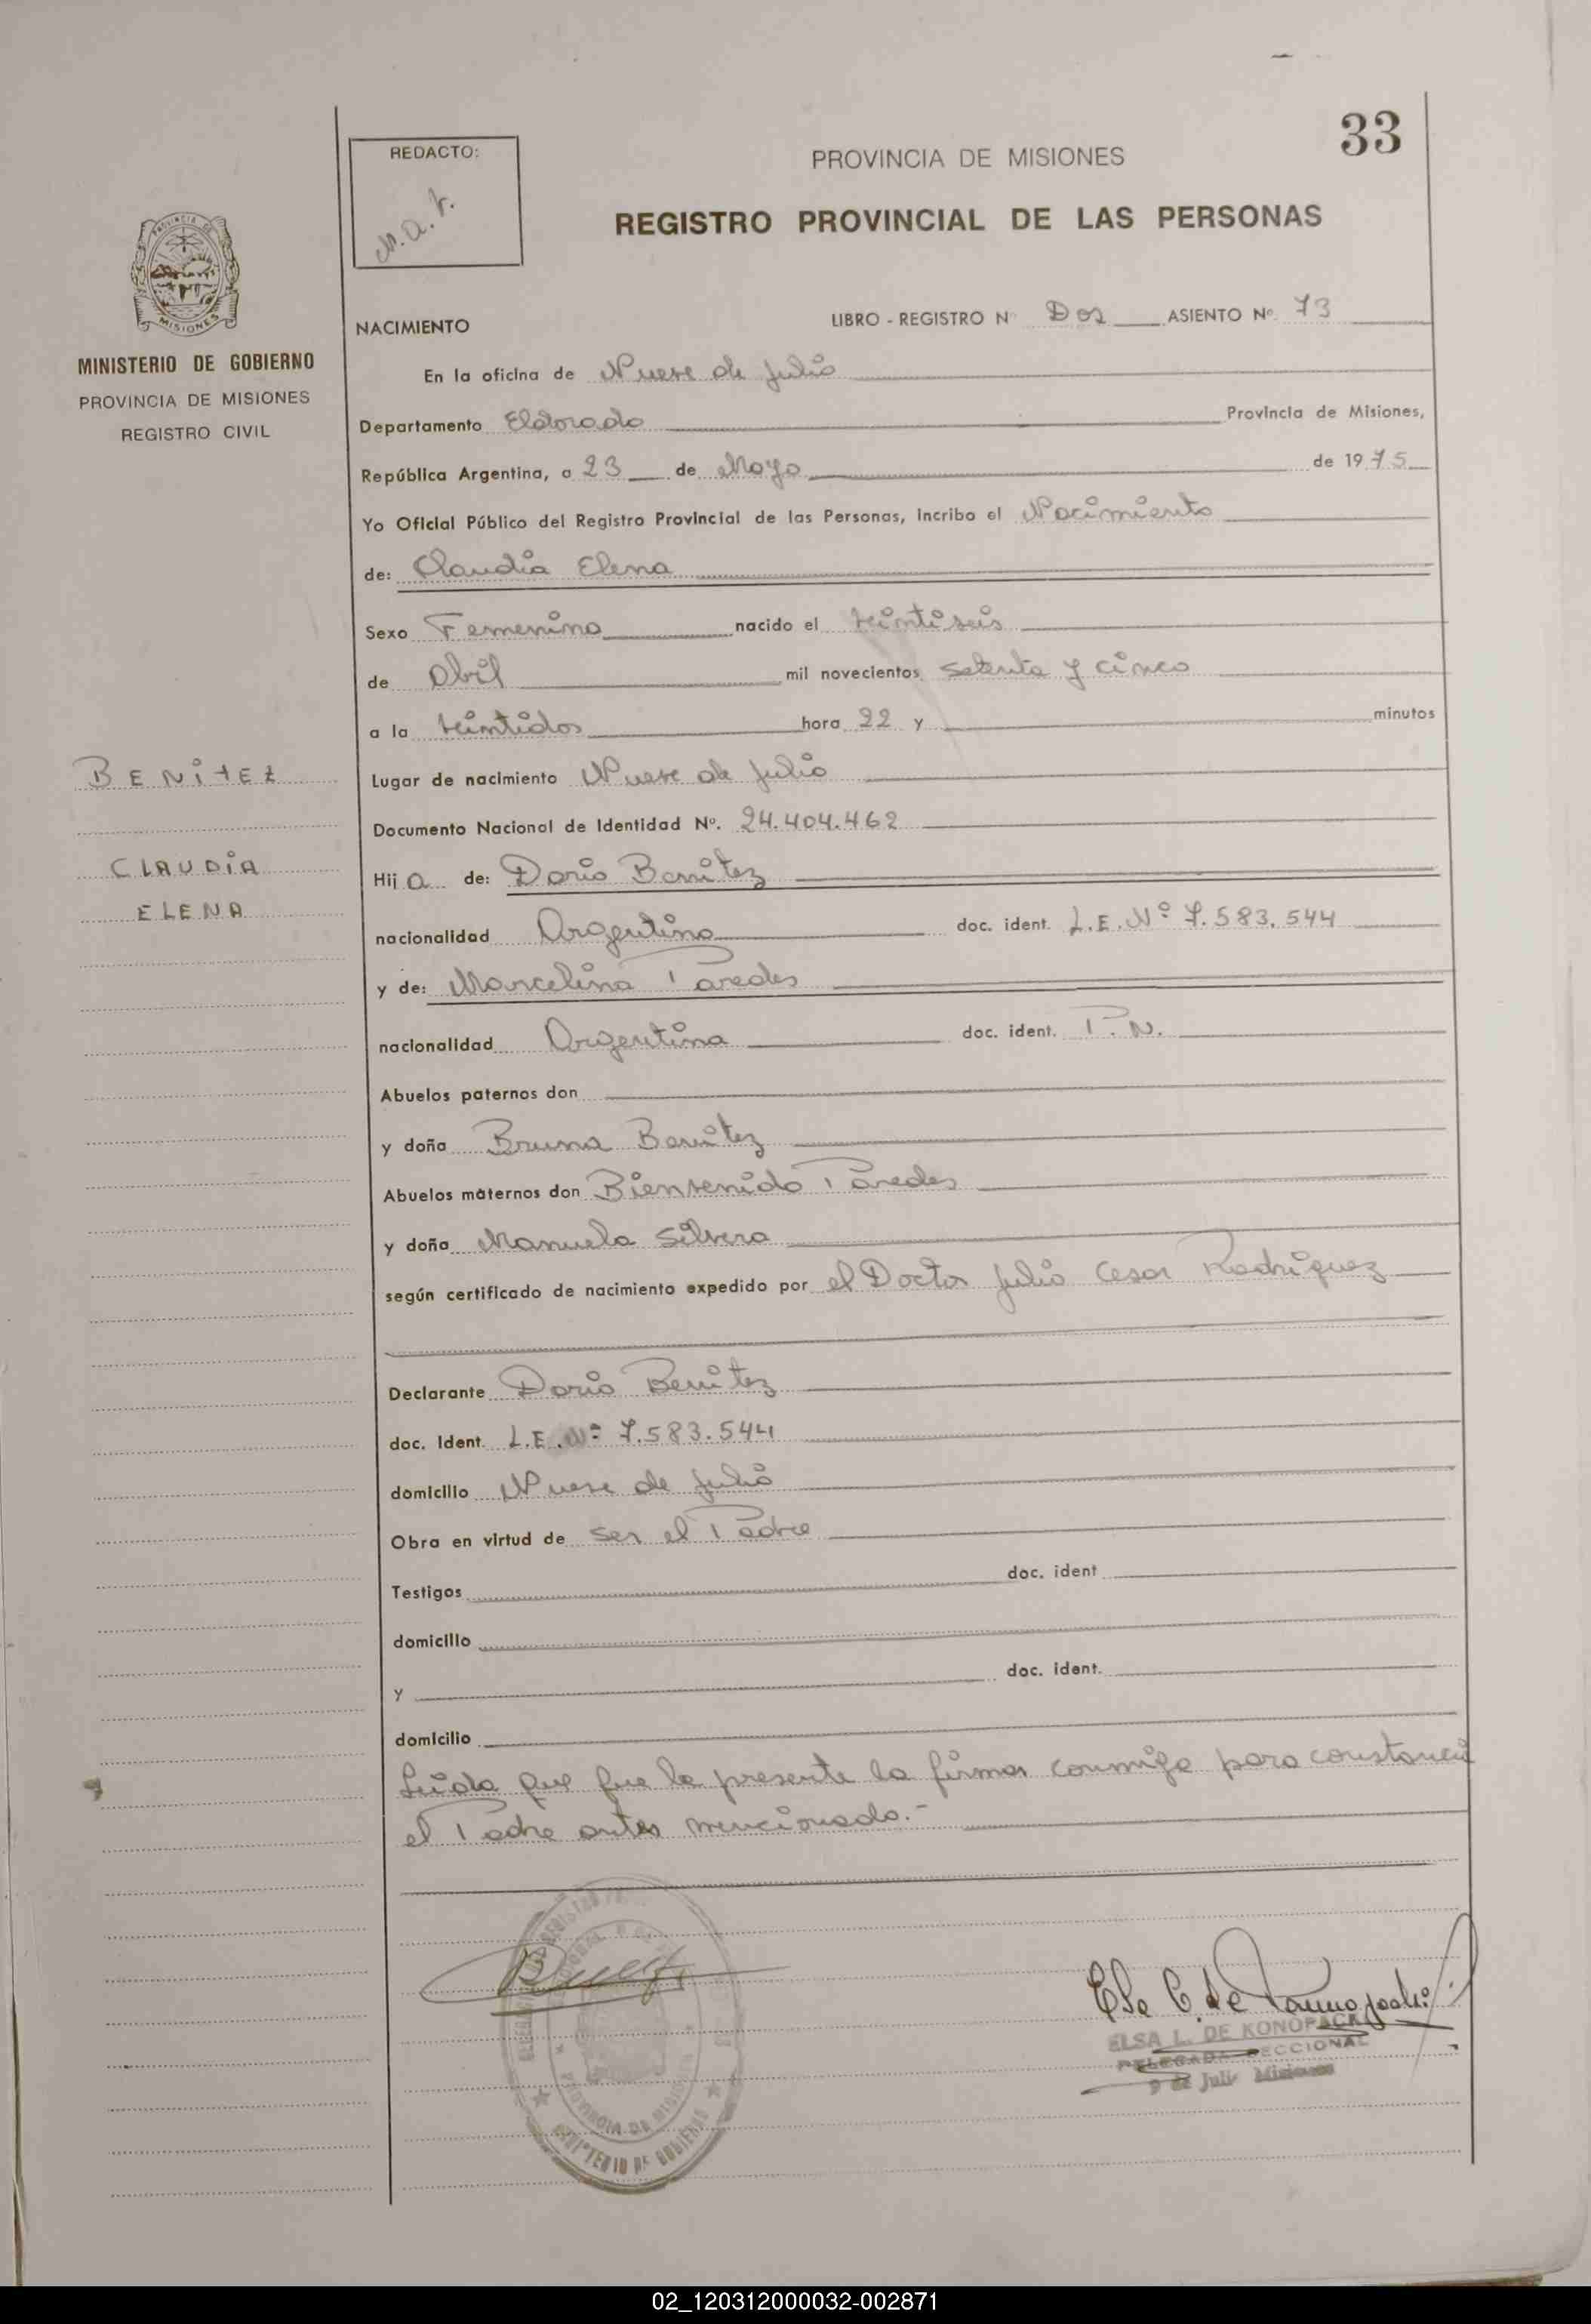 33
REDACTO:
PROVINCIA DE MISIONES
REGISTRO PROVINCIAL DE LAS PERSONAS
MISIONES
MINISTERIO DE GOBIERNO
PROVINCIA DE MISIONES
REGISTRO CIVIL
NACIMIENTO
LIBRO - REGISTRO Nº Dos ASIENTO Nº. 73
En la oficina de Nueve de Julio
Departamento Eldorado Provincia de Misiones,
República Argentina, a 23 de Mayo de 1975
Yo Oficial Público del Registro Provincial de las Personas, incribo el Nacimiento
de: Claudia Elena
Sexo Femenino nacido el veintiseis
de Abril mil novecientos setenta y cinco
a la veintidos hora 22 y minutos
BENITEZ
Lugar de nacimiento Nueve de Julio
Documento Nacional de Identidad Nº. 24.404.462
CLAUDIA
Hij a de: Dario Benitez
ELENA
nacionalidad Argentino doc. ident. L.E. Nº 7.583.544
y de: Marcelina Paredes
nacionalidad Argentina doc. ident. P.N.
Abuelos paternos don
y doña Bruna Benitez
Abuelos maternos don Bienvenido Paredes
y doña Manuela Silvera
según certificado de nacimiento expedido por el Doctor Julio Cesar Rodriguez
Declarante Dario Benitez
doc. Ident. L.E. Nº 7.583.544
domicilio Nueve de Julio
Obra en virtud de ser el Padre
Testigos doc. ident
domicilio
y doc. ident.
domicilio
Leida que fue la presente la firma conmigo para constancia
el Padre antes mencionado.-
PROVINCIA DE MISIONES
MINISTERIO DE GOBIERNO
ELSA L. DE KONOPACKI
DELEGADA SECCIONAL
9 de Julio Misiones
02_120312000032-002871